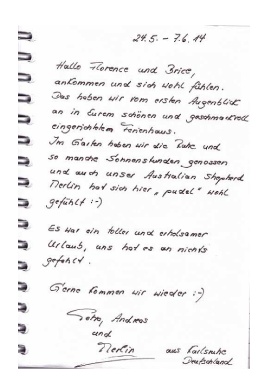 24.5. - 7.6.14
Hallo Florence und Brice,
ankommen und sich wohl fühlen.
Das haben wir vom ersten Augenblick
an in Eurem schönen und geschmackvoll
eingerichtetem Ferienhaus.
Im Garten haben wir die Ruhe und
so manche Sonnenstunden genossen
und auch unser Australian Shepherd
Merlin hat sich hier „pudel“ wohl
gefühlt :-)
Es war ein toller und erholsamer
Urlaub, uns hat es an nichts
gefehlt.
Gerne kommen wir wieder :-)
Andreas
und
Merlin aus Karlsruhe
Deutschland